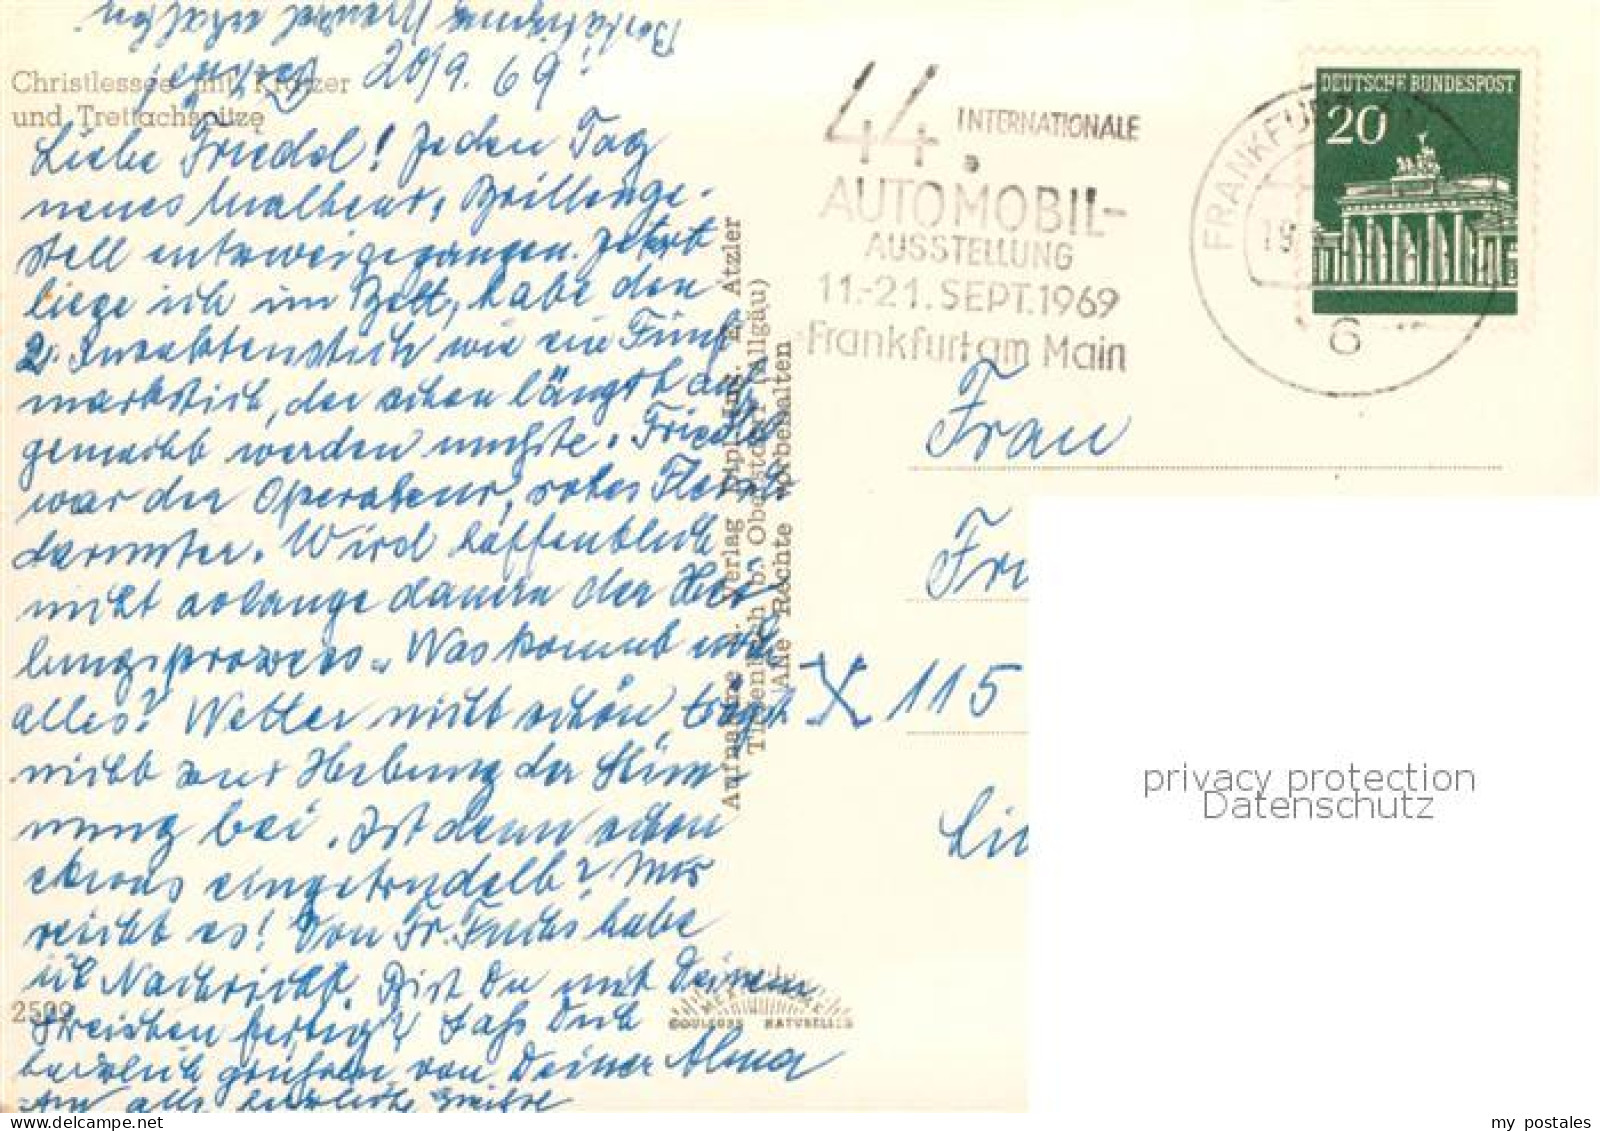 Christlessee mit Kratzer
und Trettachspitze
20/9. 69!
Liebe Friedel! Jeden Tag
neues Malheur, Brillenge-
stell entzweigegangen. Jetzt
liege ich im Bett, habe den
2. Insektenstich wie ein Fünf
markstück, der schon längst auf
gemacht werden musste. Friedel
war der Operateur, rohes Fleisch
darunter. Wird hoffentlich
nicht solange dauern der Hei-
lungsprozess. Was kommt noch
alles? Wetter nicht schön, trägt
nicht zur Hebung der Stim
mung bei. Ist denn schon
etwas eingetrudelt? Mir
reicht es! Von Fr. Fuchs habe
ich Nachricht. Bist Du mit Deinem
Streichen fertig? Lass Dich
herzlich grüßen von Deiner Alma
An alle herzliche Grüße
2509
Aufnahme u. Verlag Dipl.-Ing. E. Atzler
Tiefenbach b. Oberstdorf (Allgäu)
Alle Rechte vorbehalten
COULEURS NATURELLES
44. INTERNATIONALE
AUTOMOBIL-
AUSSTELLUNG
11.-21. SEPT. 1969
Frankfurt am Main
FRANKFURT
19
6
DEUTSCHE BUNDESPOST
20
Frau
Fri
X 115
Lin
privacy protection
Datenschutz
my postales